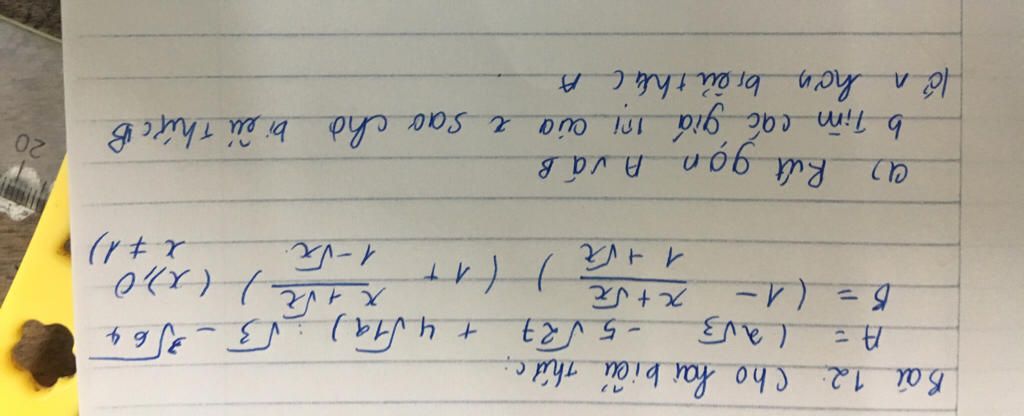 Bài 12: Cho hai biểu thức:
A = (2√3 - 5√27 + 4√12) : √3 - ³√64
B = (1 - (x+√x)/(1+√x)) (1 + (x+√x)/(1-√x)) (x⩾0 x≠1)
a) Rút gọn A và B
b Tìm các giá trị của x sao cho biểu thức B
lớn hơn biểu thức A
20